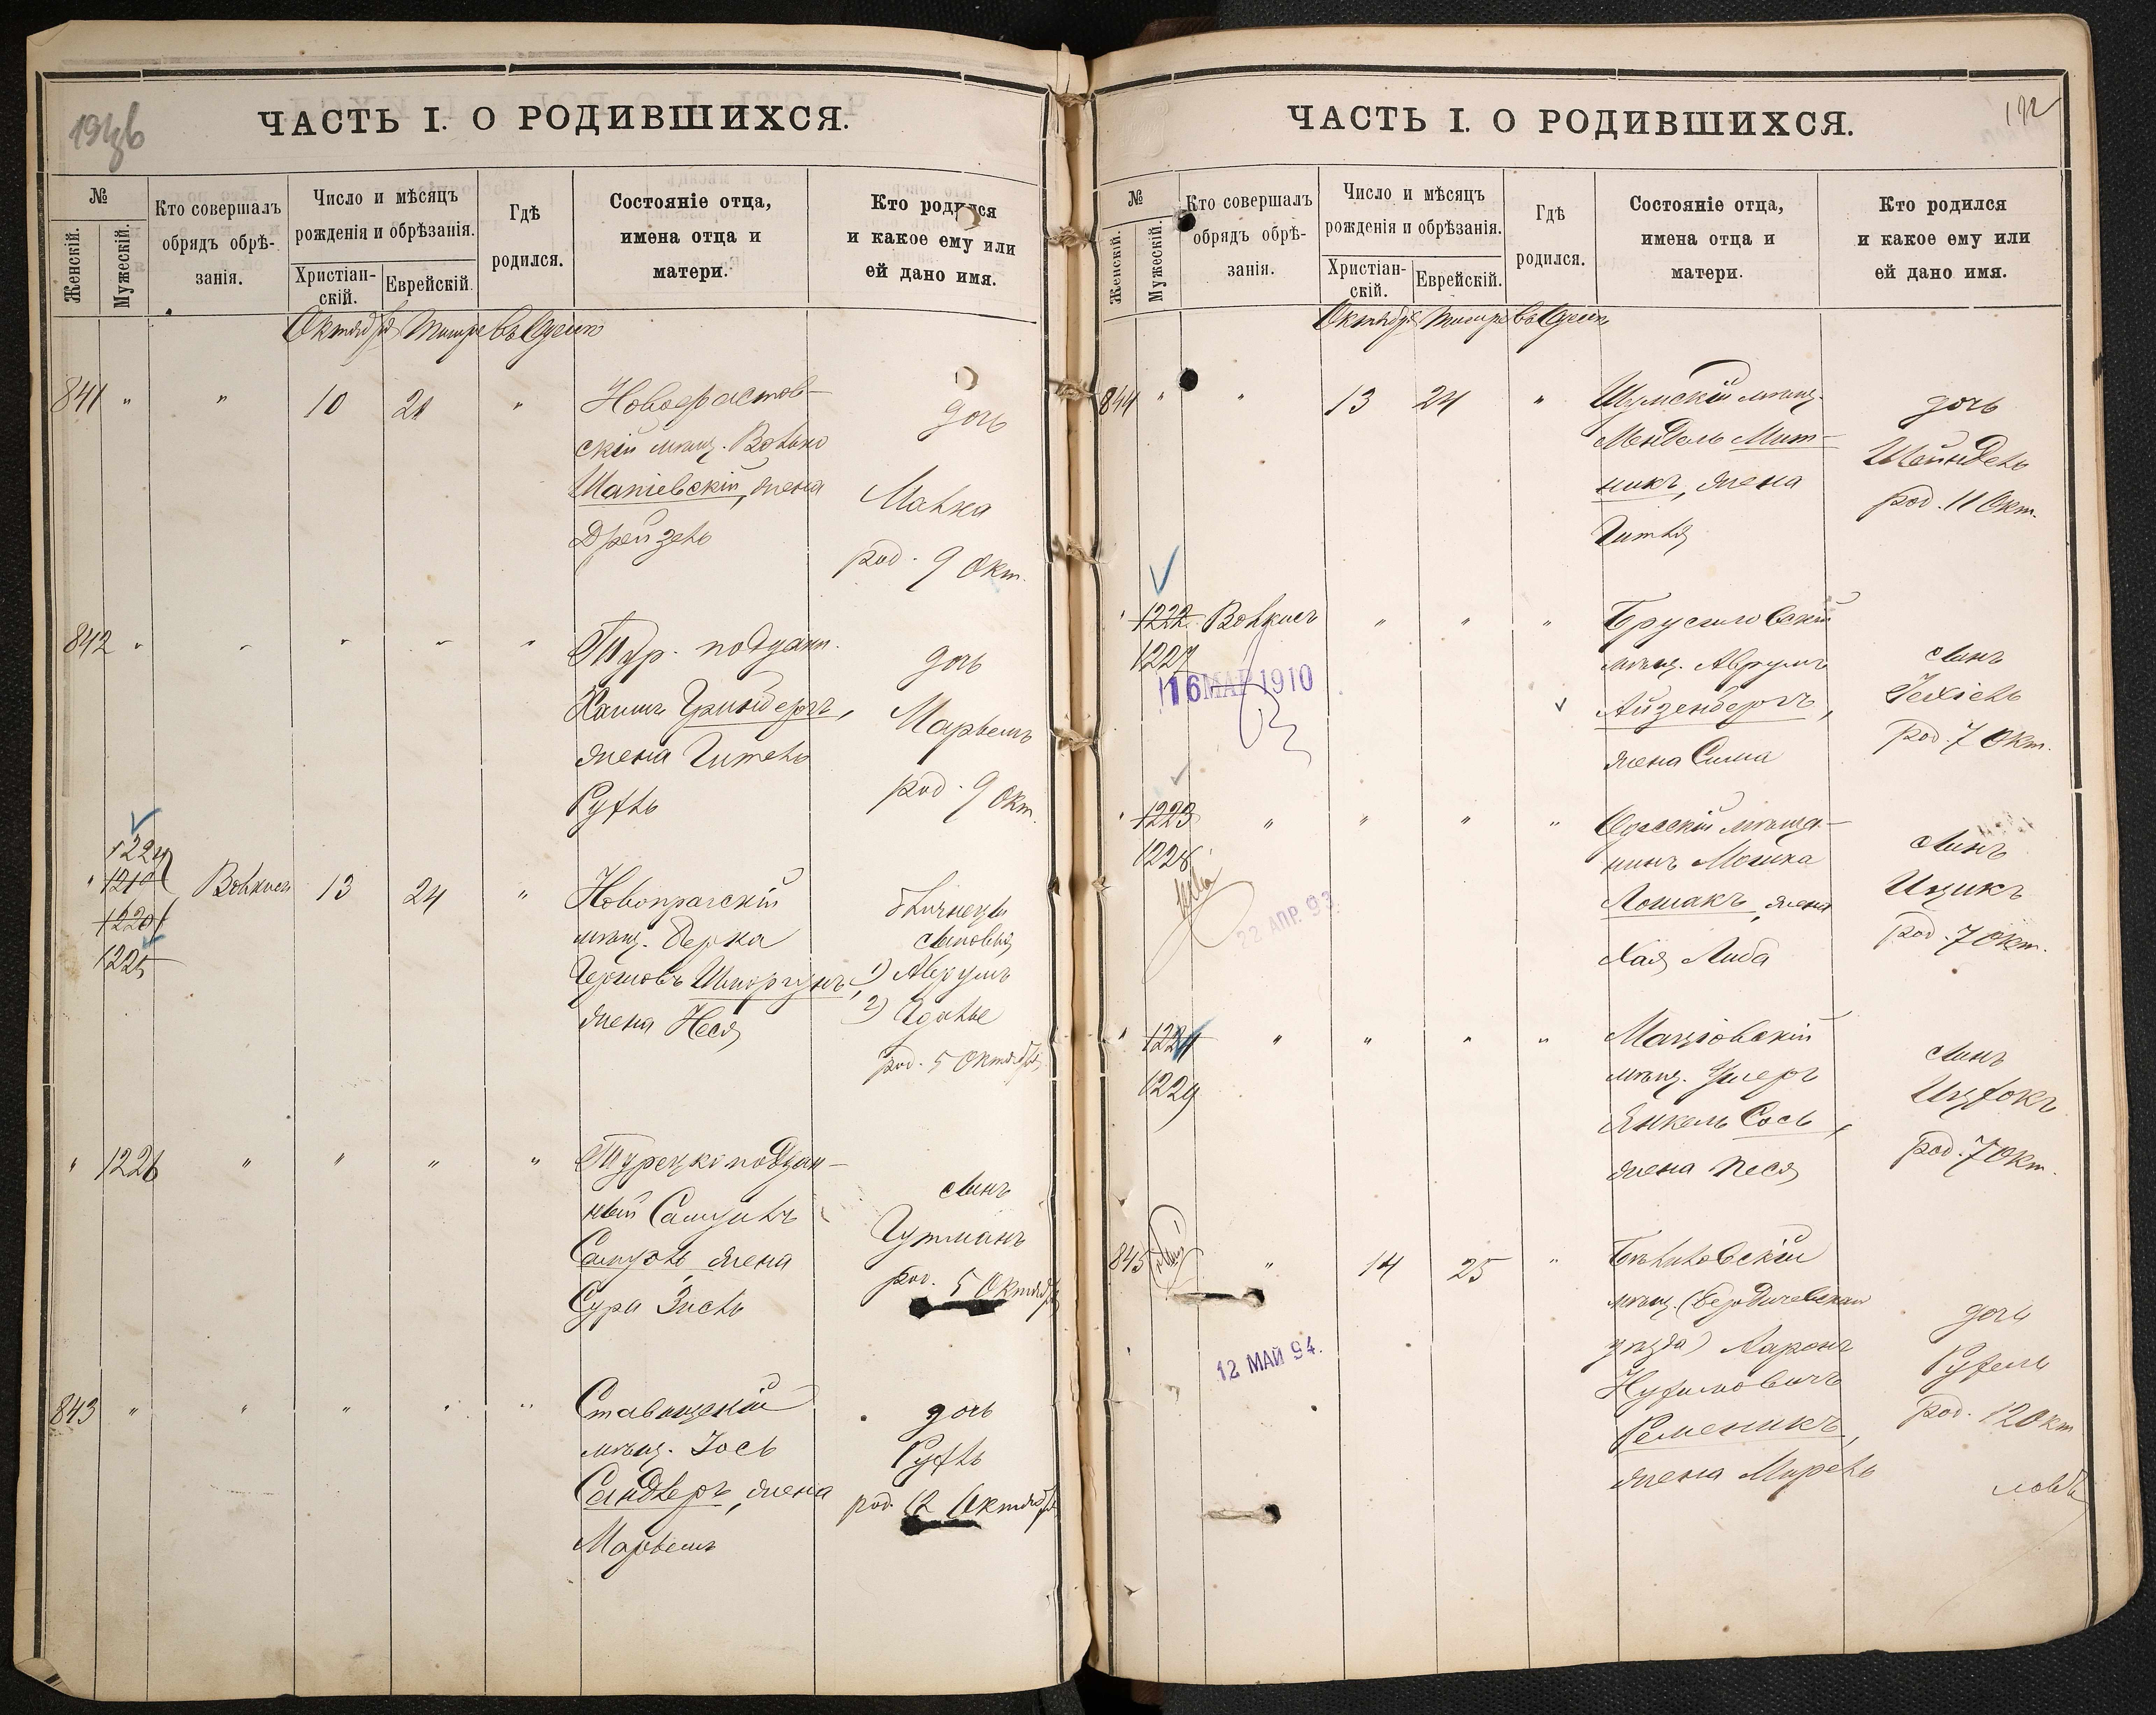 193/6
ЧАСТЬ I. О РОДИВШИХСЯ.
№
Женскій.
Мужескій.
Кто совершалъ
обрядъ обрѣ-
занія.
Число и мѣсяцъ
рожденія и обрѣзанія.
Христіан-
скій.
Еврейскій.
Гдѣ
родился.
Состояніе отца,
имена отца и
матери.
Кто родился
и какое ему или
ей дано имя.
Октября Тишре въ Одессѣ
841 " " 10 21 "
скій мѣщ. Волько
Шапіевскій, жена
Дрейзель
дочь
Малка
род. 9 Окт.
842 " " " " "
Тур. поддан.
Хаимъ Гринбергъ,
жена Гитель
Рухль
дочь
Марьемъ
род. 9 Окт.
1224
1219
1220
1225
Волкисъ 13 24 "
Новопражскій
мѣщ. Берка
жена Неся
близнецы
сыновья
1) Аврумъ
2)
род. 5 Октября
" 1226 " " " "
Турецко поддан-
ный
жена
Сура Зисль
сынъ
Гутманъ
род. 5 Октября
843 " " " " "
Ставищскій
мѣщ. Іось
Сандлеръ, жена
Марьемъ
дочь
Рухль
род. 12 Октября
ЧАСТЬ I. О РОДИВШИХСЯ.
192
№
Женскій.
Мужескій.
Кто совершалъ
обрядъ обрѣ-
занія.
Число и мѣсяцъ
рожденія и обрѣзанія.
Христіан-
скій.
Еврейскій.
Гдѣ
родился.
Состояніе отца,
имена отца и
матери.
Кто родился
и какое ему или
ей дано имя.
Октября Тишре въ Одессѣ
844 " " 13 24 "
Шумскій мѣщ.
Мендель Мит-
никъ, жена
Гитля
дочь
Шейндель
род. 11 Окт.
" 1222 Волкисъ " " "
1227
16 МАР 1910
Брусиловскій
мѣщ. Аврумъ
Айзенбергъ,
жена Сима
сынъ
Іехіель
род. 7 Окт.
" 1223 " " " "
1228
22 АПР. 93
Одесскій мѣща-
нинъ Мошка
Лошакъ, жена
Хая Либа
сынъ
Ицикъ
род. 7 Окт.
" 1224 " " " "
1229
Маціовскій
мѣщ. Ушеръ
Янкель Сось,
жена Песя
сынъ
Ицхокъ
род. 7 Окт.
845 " 14 25 "
12 МАЙ 94.
Бѣлиловскій
мѣщ. (Бердичевскаго
уѣзда) Ааронъ
Нухимовичъ
Ременикъ,
жена Мирель
дочь
Рухель
род. 12 Окт